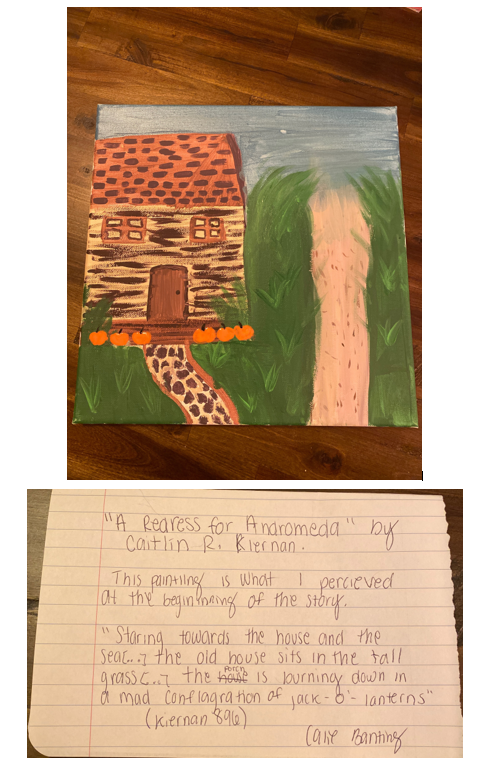 "A Redress for Andromeda" by
Caitlin R. Kiernan.
This painting is what I percieved
at the beginnning of the story.
"Staring towards the house and the
sea[...] the old house sits in the tall
grass[...] the porch is burning down in
a mad conflagration of jack-o'-lanterns"
(Kiernan 896)
Banting